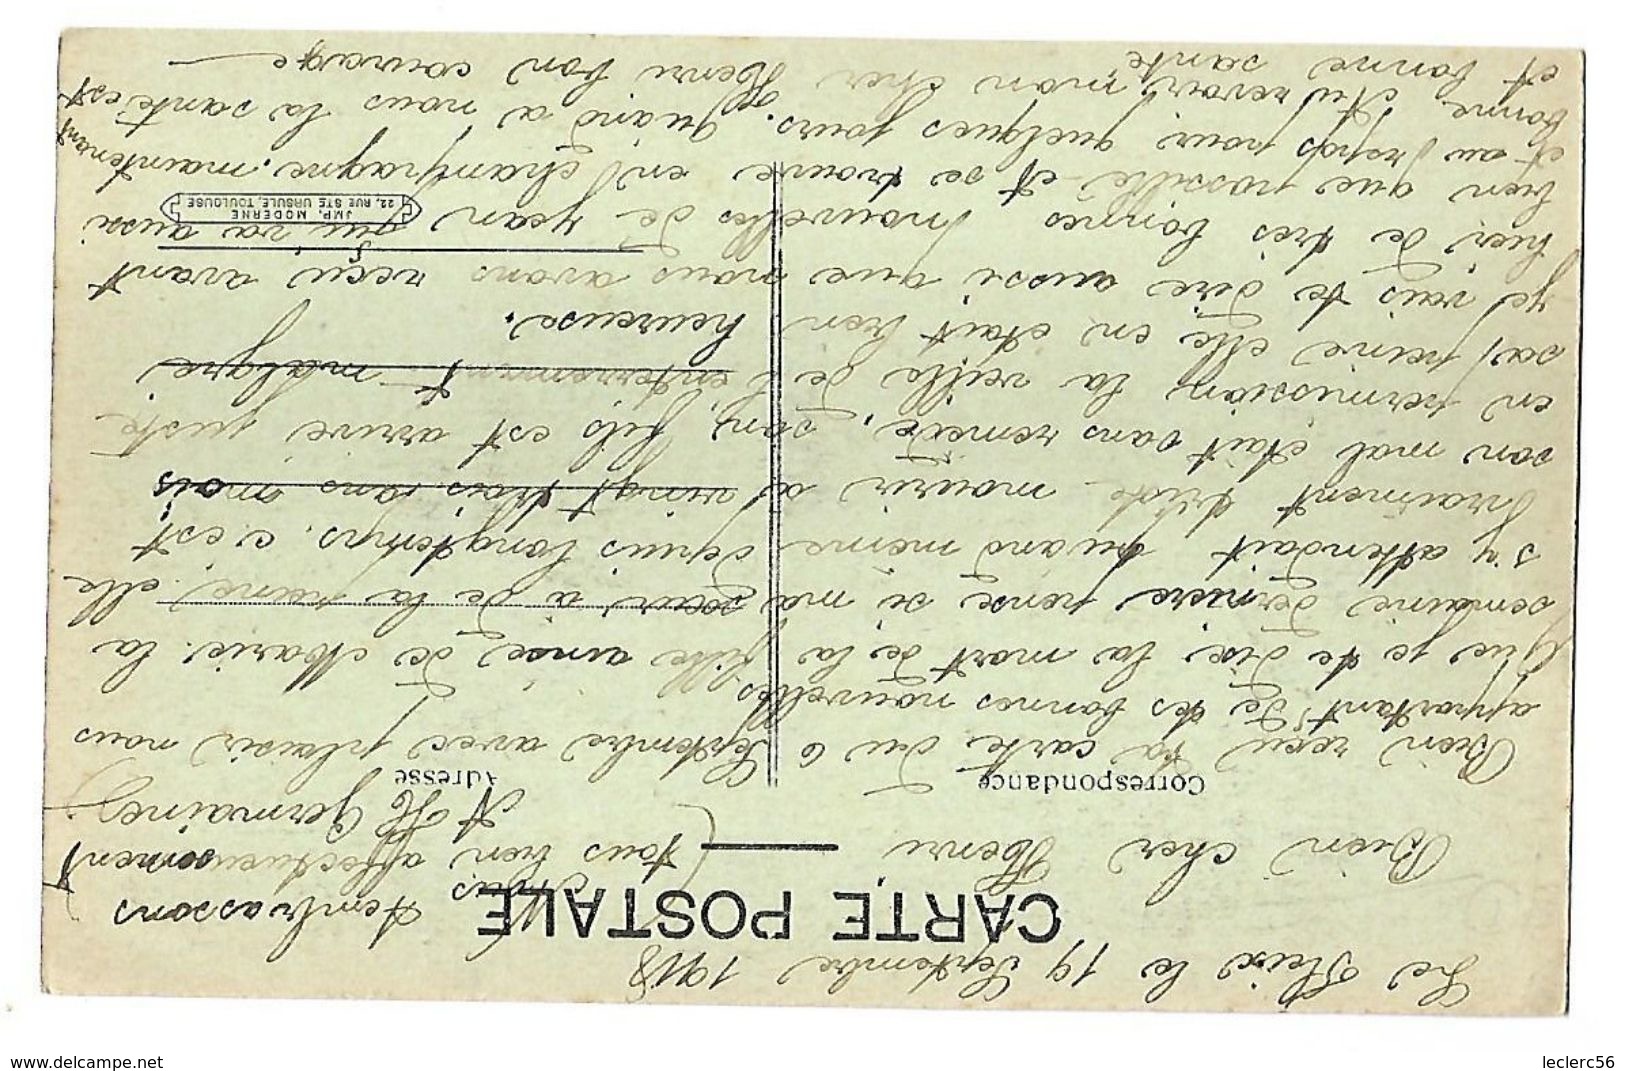 Le Fleix le 19 Septembre 1918
CARTE POSTALE
Bien cher Henri
Correspondance
Adresse
Bien reçu ta carte du 6 Septembre avec plaisir nous
apportant de des bonnes nouvelles
Que je te dise la mort de la fille ainée de Marie. la
semaine dernière pense si ma soeur a de la peine, elle
s'y attendait quand même depuis longtemps. c'est
vraiment triste mourir a vingt trois ans mais
son mal était sans remède, son fils est arrivé juste
en permission la veille de l'enterrement malgré
sa peine elle en était bien heureuse.
je vais te dire aussi que nous avons reçu avant
hier de très bonnes nouvelles de jean qui va aussi
bien que possible et se trouve en champagne. maintenant
et au repos pour quelques jours. Quand a nous la santé est
bonne. Au revoir mon cher Henri bon courage
et bonne santé
Nous t'embrassons
tous bien affectueusement
A H Germaine
IMP. MODERNE
22, RUE STE URSULE, TOULOUSE
www.delcampe.net
leclerc56